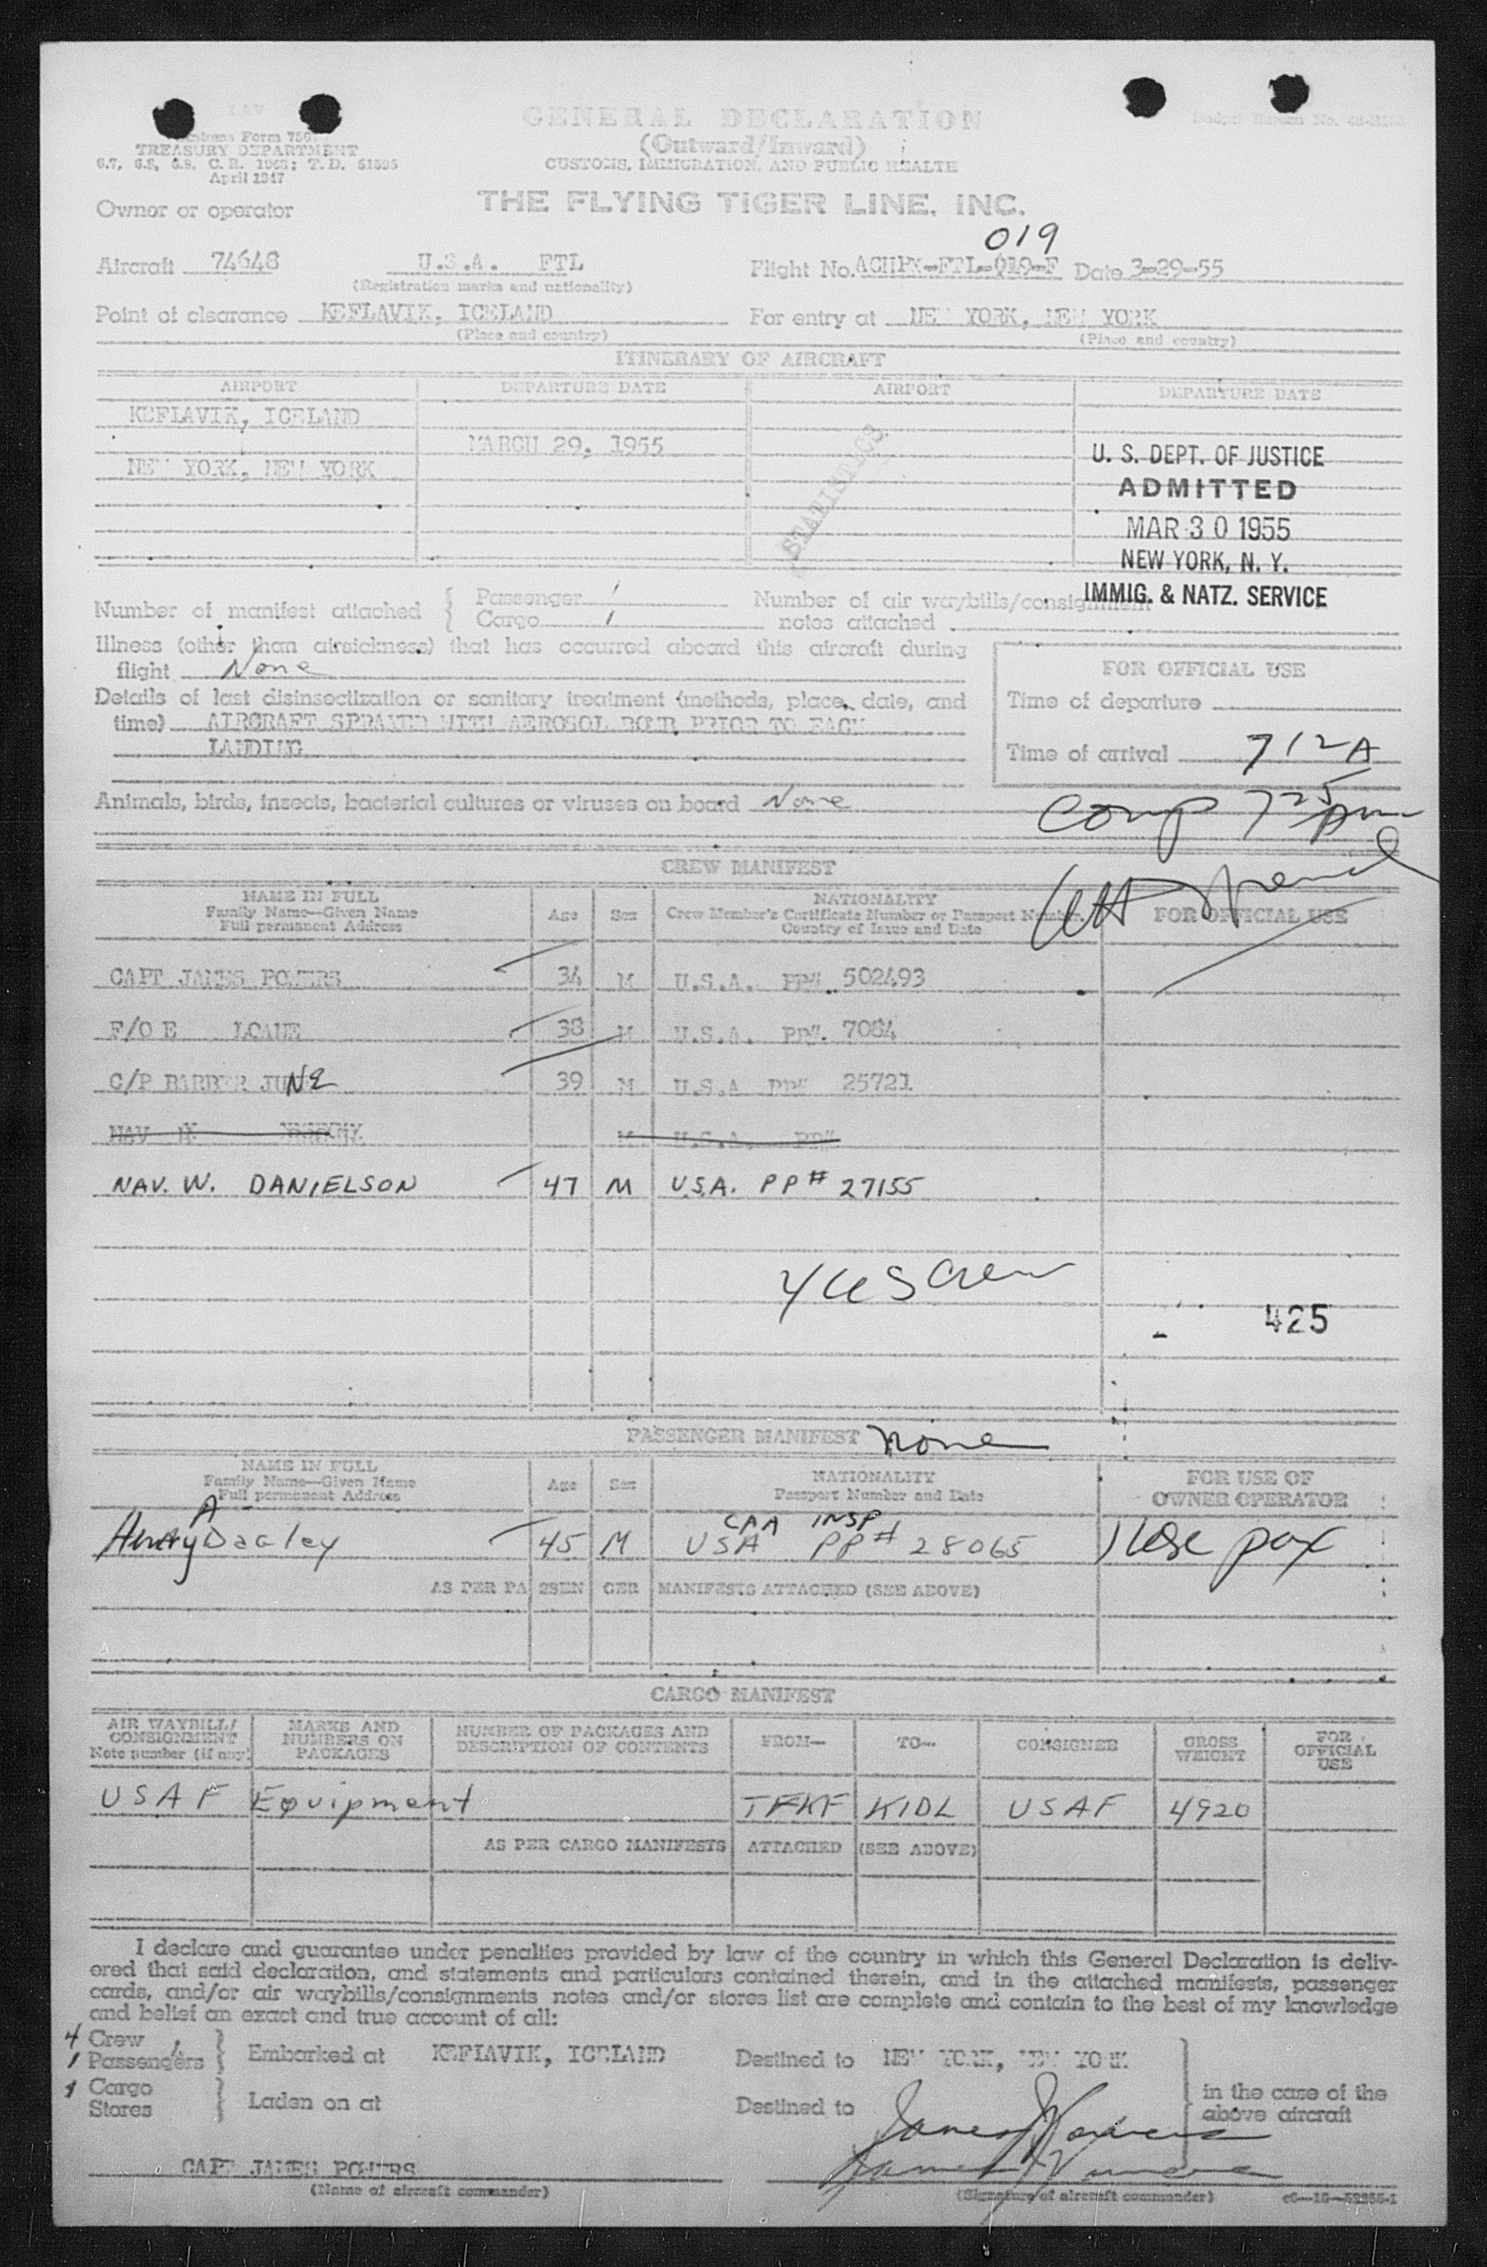 GENERAL DECLARATION
(Outward/Inward)
CUSTOMS, IMMIGRATION, AND PUBLIC HEALTH
Customs Form 750
TREASURY DEPARTMENT
April 1947
THE FLYING TIGER LINE, INC.
Owner or operator
019
Aircraft 74648 U.S.A. FTL Flight No. ACHPK-FTL-019-F Date 3-29-55
(Registration marks and nationality)
Point of clearance KEFLAVIK, ICELAND For entry at NEW YORK, NEW YORK
(Place and country) (Place and country)
ITINERARY OF AIRCRAFT
AIRPORT DEPARTURE DATE AIRPORT DEPARTURE DATE
KEFLAVIK, ICELAND
MARCH 29, 1955
NEW YORK, NEW YORK
STATISTICS
U. S. DEPT. OF JUSTICE
ADMITTED
MAR 30 1955
NEW YORK, N. Y.
IMMIG. & NATZ. SERVICE
Number of manifest attached { Passenger 1 Number of air waybills/consignment
Cargo 1 notes attached
Illness (other than airsickness) that has occurred aboard this aircraft during
flight None
FOR OFFICIAL USE
Details of last disinsectization or sanitary treatment (methods, place, date, and
time) AIRCRAFT SPRAYED WITH AEROSOL BOMB PRIOR TO EACH
LANDING
Time of departure
Time of arrival 712A
Animals, birds, insects, bacterial cultures or viruses on board None
Comp 725 Am
CREW MANIFEST
NAME IN FULL
Family Name—Given Name
Full permanent Address
Age Sex
NATIONALITY
Crew Member's Certificate Number or Passport Number,
Country of Issue and Date
FOR OFFICIAL USE
CAPT JAMES POWERS 34 M U.S.A. PP#. 502493
F/O E LOANE 38 M U.S.A. PP#. 7084
C/P BARBER JUNE 39 M U.S.A PP# 25721
NAV M U.S.A. PP#
NAV. W. DANIELSON 47 M USA. PP# 27155
4 US Crew
425
PASSENGER MANIFEST None
NAME IN FULL
Family Name—Given Name
Full permanent Address
Age Sex
NATIONALITY
Passport Number and Date
FOR USE OF
OWNER OPERATOR
A CAA INSP
Henry Dagley 45 M USA PP# 28065 1 use pax
AS PER PASSENGER MANIFESTS ATTACHED (SEE ABOVE)
CARGO MANIFEST
AIR WAYBILL/
CONSIGNMENT
Note number (if any)
MARKS AND
NUMBERS ON
PACKAGES
NUMBER OF PACKAGES AND
DESCRIPTION OF CONTENTS
FROM— TO— CONSIGNEE
GROSS
WEIGHT
FOR
OFFICIAL
USE
USAF Equipment TFKF KIDL USAF 4920
AS PER CARGO MANIFESTS ATTACHED (SEE ABOVE)
I declare and guarantee under penalties provided by law of the country in which this General Declaration is deliv-
ered that said declaration, and statements and particulars contained therein, and in the attached manifests, passenger
cards, and/or air waybills/consignments notes and/or stores list are complete and contain to the best of my knowledge
and belief an exact and true account of all:
4 Crew
1 Passengers } Embarked at KEFLAVIK, ICELAND Destined to NEW YORK, NEW YORK
1 Cargo
Stores } Laden on at Destined to
in the case of the
above aircraft
James J Powers
James J Powers
CAPT JAMES POWERS
(Name of aircraft commander) (Signature of aircraft commander)